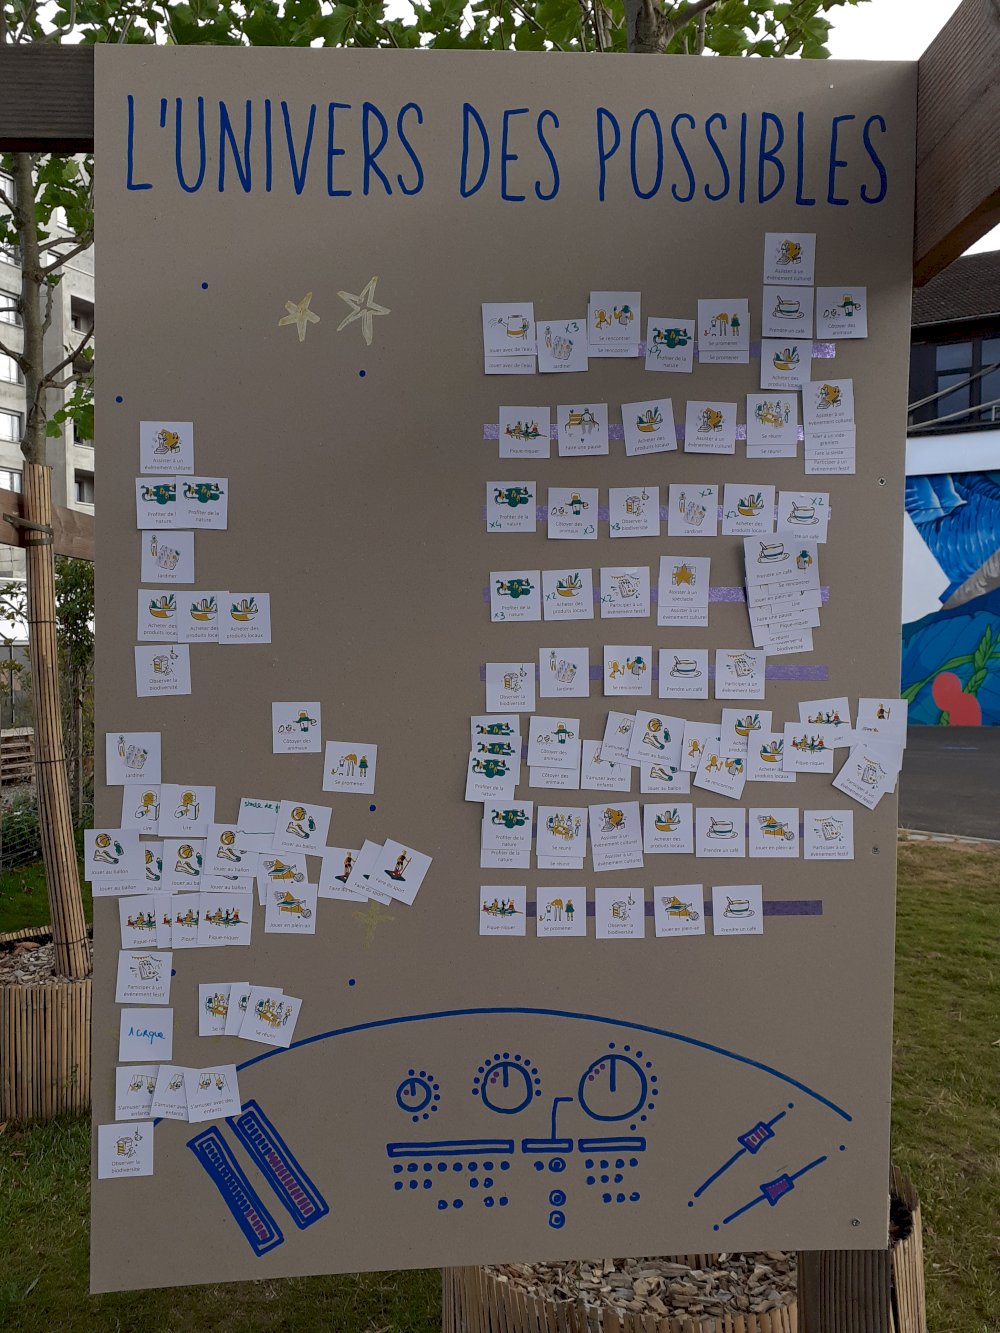 L'UNIVERS DES POSSIBLES
Assister à un
évènement culturel
Prendre un café
Côtoyer des
animaux
Jouer avec de l'eau
Jouer avec de l'eau
x3
Jardiner
Se rencontrer
Se rencontrer
Profiter de la
nature
Se promener
Se promener
Acheter des
produits locaux
Pique-niquer
Faire une pause
Acheter des
produits locaux
Assister à un
évènement culturel
Se réunir
Se réunir
Assister à un
évènement culturel
Faire la sieste
Participer à un
évènement festif
Profiter de la
nature
x4
Côtoyer des
animaux
x3
Observer la
biodiversité
x3
x2
Jardiner
x2
Acheter des
produits locaux
x2
Profiter de la
nature
x3
x2
Acheter des
produits locaux
x2
Participer à un
évènement festif
Assister à un
spectacle
Assister à un
évènement culturel
Prendre un café
Se rencontrer
Jouer en plein-air
Lire
Faire une pause
Pique-niquer
Se réunir
Observer la
biodiversité
Jardiner
Se rencontrer
Prendre un café
Participer à un
évènement festif
Profiter de la
nature
Côtoyer des
animaux
Côtoyer des
animaux
S'amuser avec des
enfants
Jouer au ballon
Se rencontrer
Acheter des
produits locaux
Pique-niquer
Participer à un
évènement festif
Profiter de la
nature
Se réunir
Se réunir
Assister à un
évènement culturel
Acheter des
produits locaux
Prendre un café
Jouer en plein-air
Participer à un
évènement festif
Pique-niquer
Se promener
Observer la
biodiversité
Jouer en plein-air
Prendre un café
Assister à un
évènement culturel
Profiter de la
nature
Profiter de la
nature
Jardiner
Acheter des
produits locaux
Acheter des
produits locaux
Acheter des
produits locaux
Observer la
biodiversité
Côtoyer des
animaux
Jardiner
Se promener
Lire
Lire
Jouer au ballon
Jouer au ballon
Jouer au ballon
Jouer au ballon
Faire du sport
Pique-niquer
Jouer en plein-air
Participer à un
évènement festif
Se réunir
1 cirque
S'amuser avec des
enfants
Observer la
biodiversité